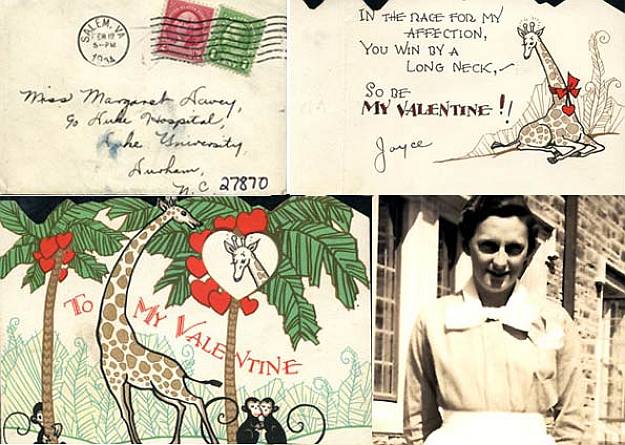 SALEM, VA.
5-PM
Miss Margaret
c/o Duke Hospital,
Duke University,
Durham,
N.C. 27870
IN THE RACE FOR MY
AFFECTION,
YOU WIN BY A
LONG NECK,—
SO BE
MY VALENTINE!!
Joyce
TO MY VALENTINE